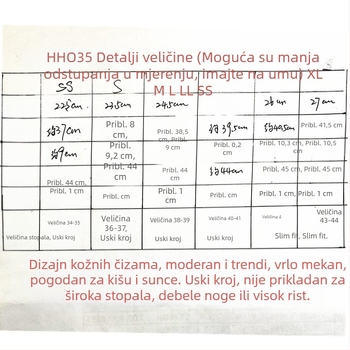 HHO35 Detalji veličine (Moguća su manja
odstupanja u mjerenju, imajte na umu) XL
M L LL SS
SS S
22.5cm 23.5cm 24.5cm 26cm 27cm
约37cm Pribl. 8 cm, Pribl. 38,5 cm 约39.5cm 约40.5cm Pribl. 41,5 cm
约9cm Pribl. 9,2 cm, Pribl. 9 cm Pribl. 0,2 cm Pribl. 10,3 cm, Pribl. 10,5 cm
Pribl. 44 cm, Pribl. 44 cm Pribl. 44 cm 约44cm Pribl. 45 cm, Pribl. 45 cm
Pribl. 1 cm Pribl. cm Pribl. 1 cm Pribl. 1 cm, Pribl. 1 cm
Veličina 34-35 Veličina 36-37, Veličina 38-39 Veličina 40-41 Veličina 4 Veličina 43-44
Veličina stopala, Uski kroj Uski kroj Uski kroj Uski kroj Slim fit, Slim fit,
Dizajn kožnih čizama, moderan i trendi, vrlo mekan,
pogodan za kišu i sunce. Uski kroj, nije prikladan za
široka stopala, debele noge ili visok rist.